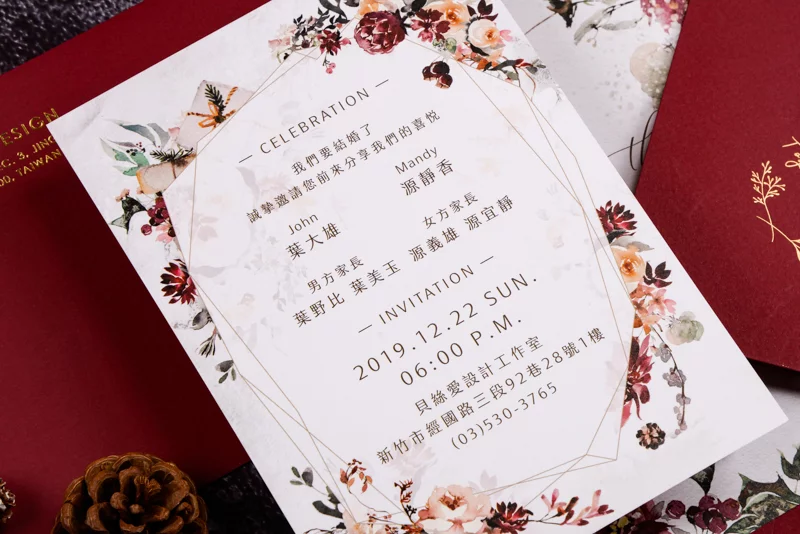 ESIGN
C. 3, JING
00, TAIWAN
— CELEBRATION —
我們要結婚了
誠摯邀請您前來分享我們的喜悅
John
葉大雄
Mandy
源靜香
男方家長
葉野比 葉美玉
女方家長
源義雄 源宜靜
— INVITATION —
2019.12.22 SUN.
06:00 P.M.
貝絲愛設計工作室
新竹市經國路三段92巷28號1樓
(03)530-3765